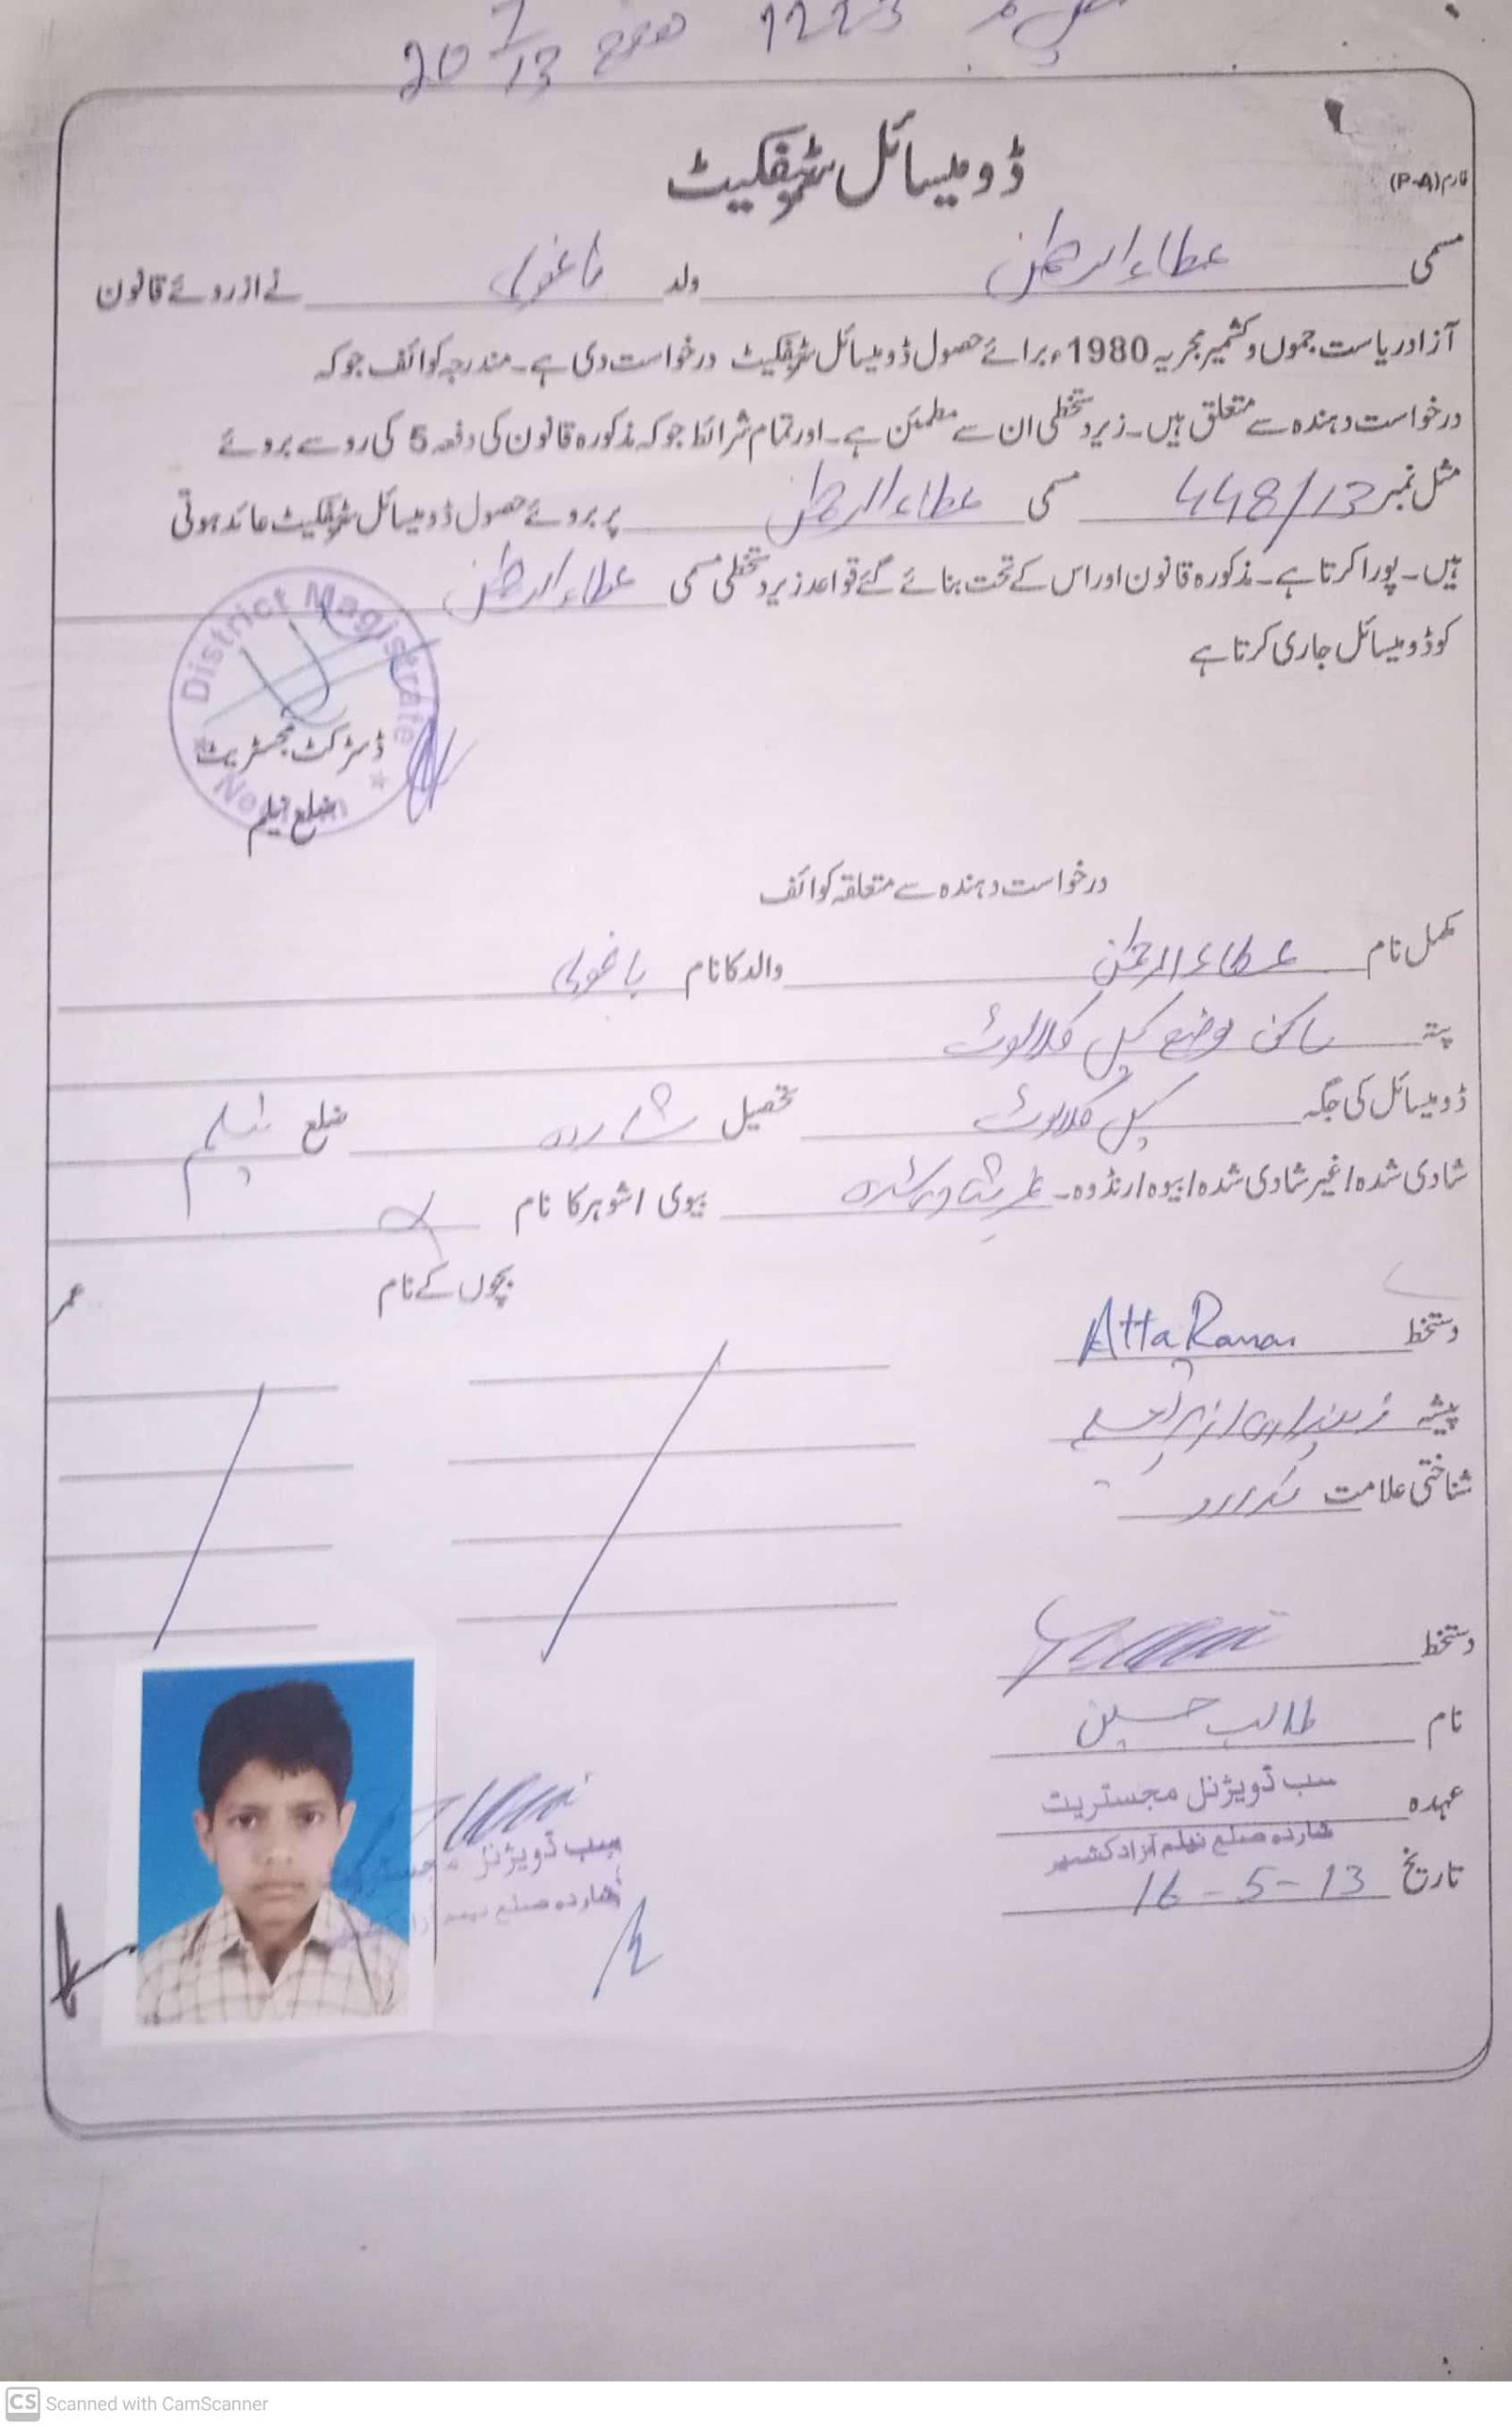 1223
20 1/13
ڈومیسائل سرٹیفکیٹ
فارم (P-A)
مسمی عطاء الرحمٰن ولد نے ازروئے قانون
آزاد ریاست جموں و کشمیر مجریہ 1980ء برائے حصول ڈومیسائل سرٹیفکیٹ درخواست دی ہے۔ مندرجہ کوائف جو کہ
درخواست دہندہ سے متعلق ہیں۔ زیر دستخطی ان سے مطمئن ہے۔ اور تمام شرائط جو کہ مذکورہ قانون کی دفعہ 5 کی رو سے بروئے
مثل نمبر 448/13 مسمی عطاء الرحمٰن پر بروئے حصول ڈومیسائل سرٹیفکیٹ عائد ہوتی
ہیں۔ پورا کرتا ہے۔ مذکورہ قانون اور اس کے تحت بنائے گئے قواعد زیر دستخطی مسمی عطاء الرحمٰن
کو ڈومیسائل جاری کرتا ہے
District Magistrate
ڈسٹرکٹ مجسٹریٹ
ضلع نیلم
درخواست دہندہ سے متعلقہ کوائف
مکمل نام عطاء الرحمٰن والد کا نام
پتہ ساکن موضع کیل
ڈومیسائل کی جگہ کیل تحصیل شاردہ ضلع نیلم
شادی شدہ / غیر شادی شدہ / بیوہ / رنڈوہ۔ غیر شادی شدہ بیوی / شوہر کا نام
بچوں کے نام عمر
دستخط Atta Raman
پیشہ زمینداری
شناختی علامت
دستخط
نام طالب حسین
عہدہ سب ڈویژنل مجسٹریٹ
شاردہ ضلع نیلم آزاد کشمیر
تاریخ 16-5-13
سب ڈویژنل مجسٹریٹ
شاردہ ضلع نیلم
CS Scanned with CamScanner